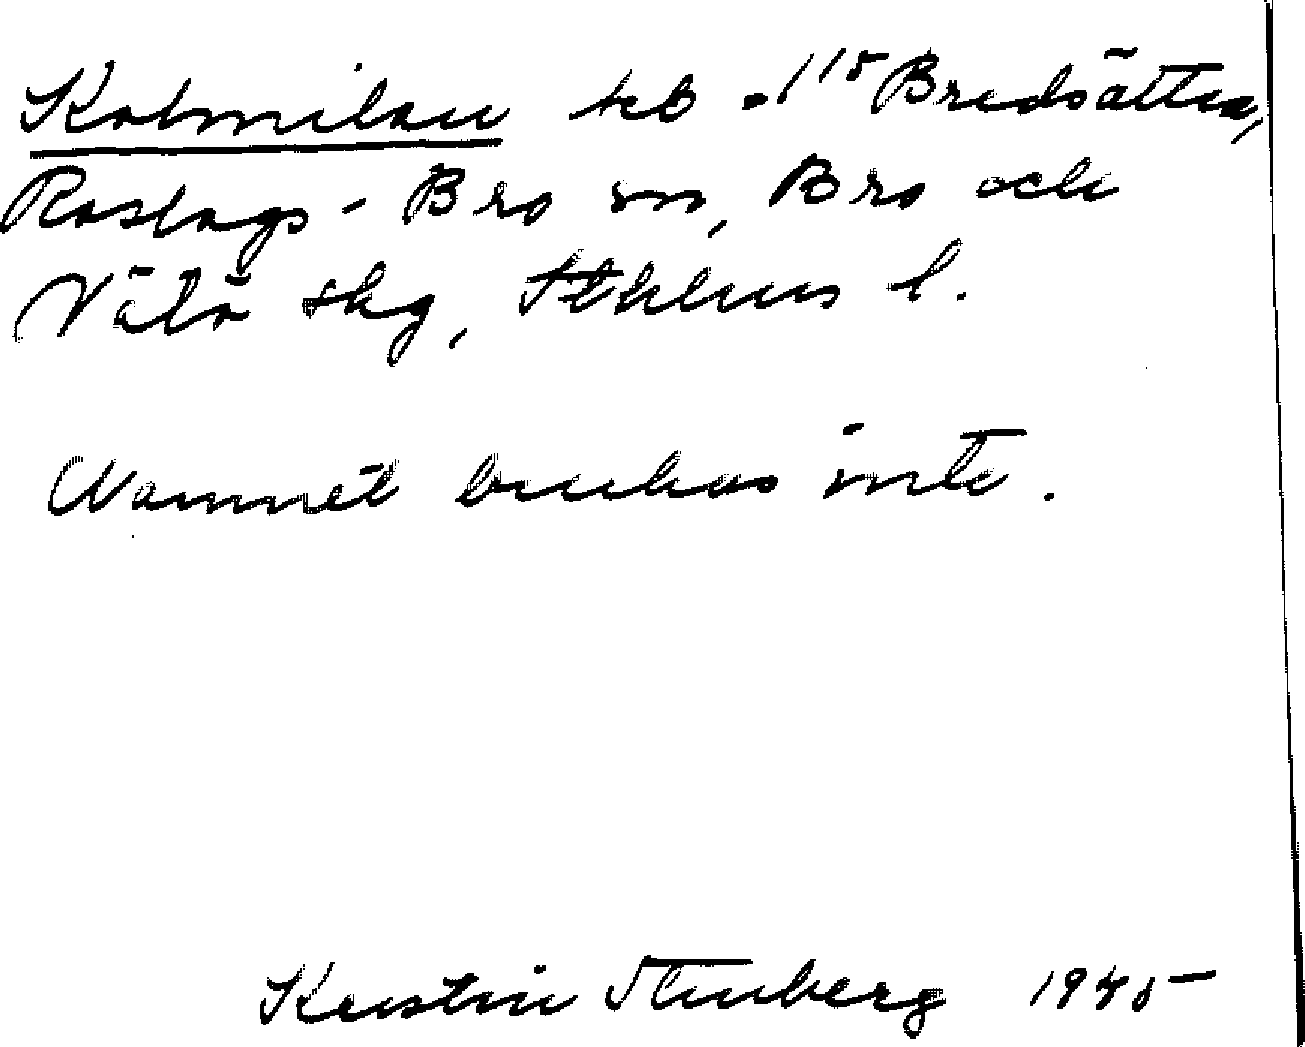 Kolmilan teb. 1¹⁵ Bredsättra,
Roslags-Bro sn, Bro och
Vätö skg, Sthlms l.
Namnet brukas inte.
Kerstin Stenberg 1945